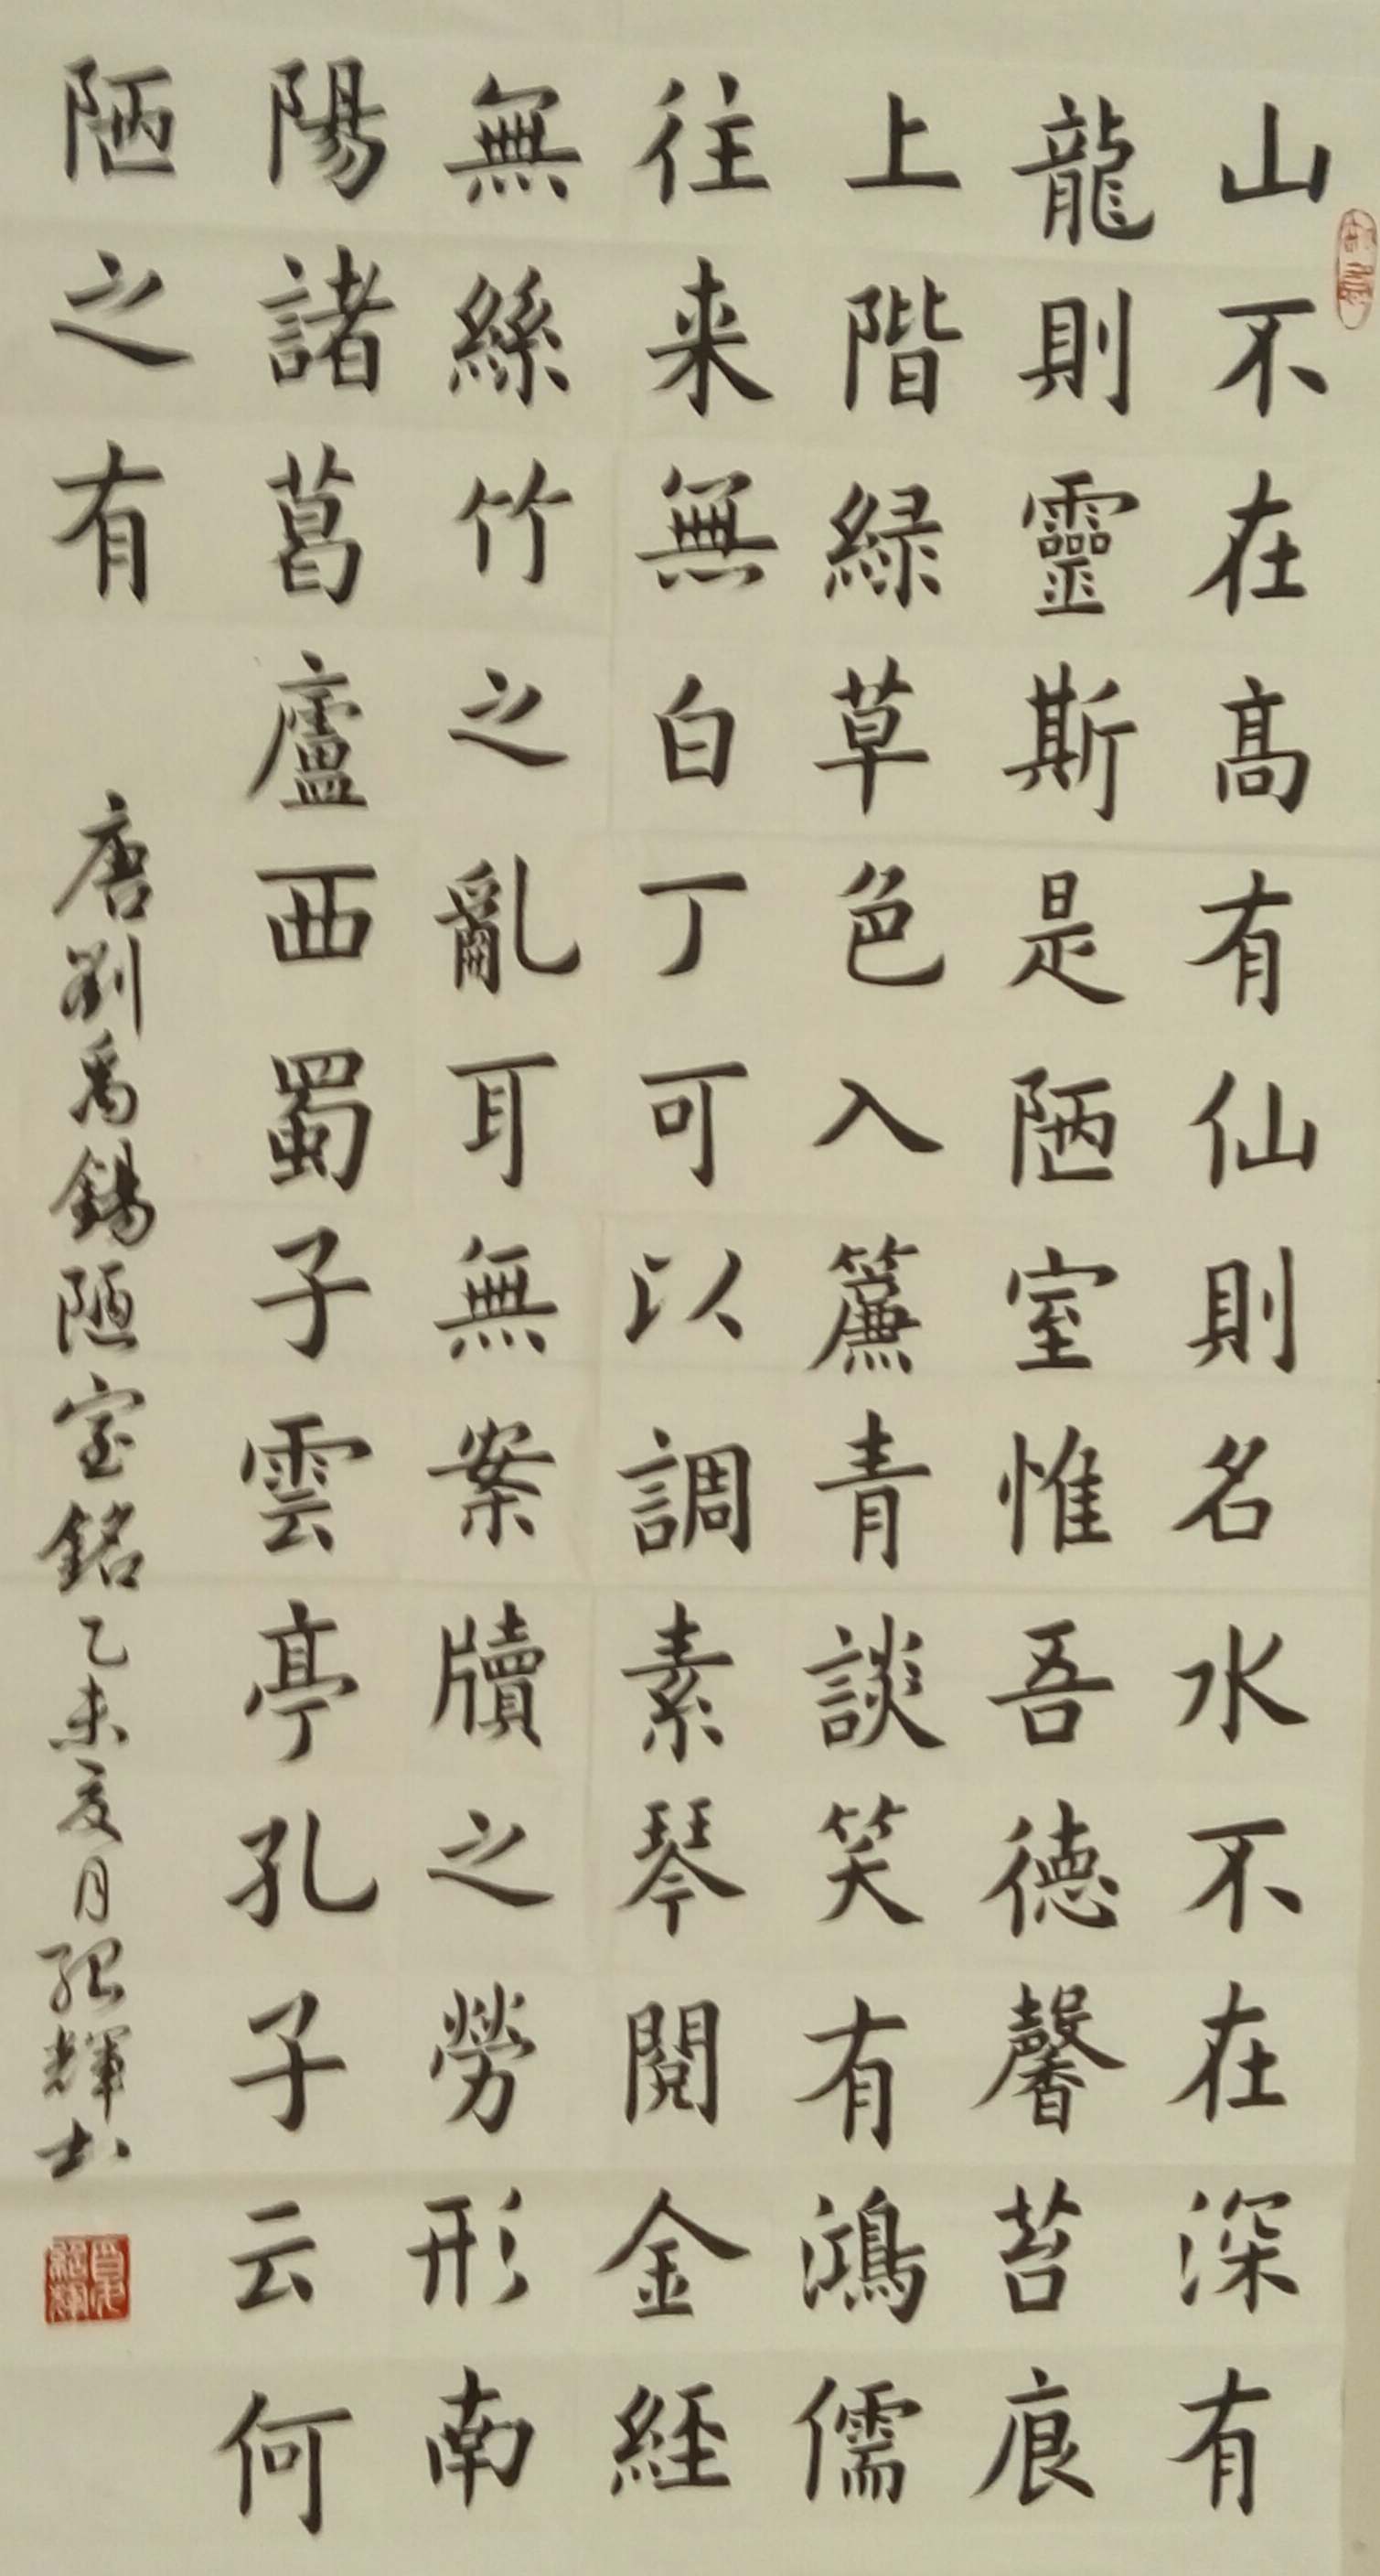 山不在高有仙則名水不在深有
龍則靈斯是陋室惟吾德馨苔痕
上階緑草色入簾青談笑有鴻儒
往来無白丁可以調素琴閱金經
無絲竹之亂耳無案牘之勞形南
陽諸葛廬西蜀子雲亭孔子云何
陋之有 唐劉禹錫陋室銘乙未夏月紹輝书